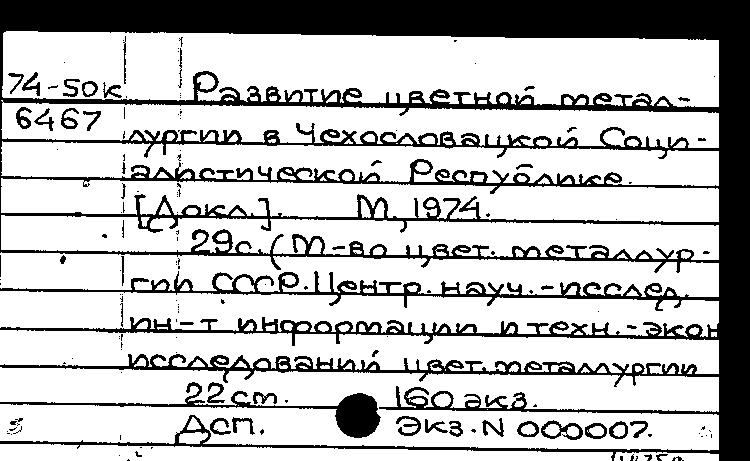 74-50к Развитие цветной метал-
6467 лургии в Чехословацкой Соци-
алистической Республике.
[Докл.]. М., 1974.
29с. (М-во цвет. металлур-
гии СССР. Центр. науч.-исслед.
ин-т информации и техн.-экон
исследований цвет. металлургии
22 см. 160 экз.
Дсп. Экз. N 000007.